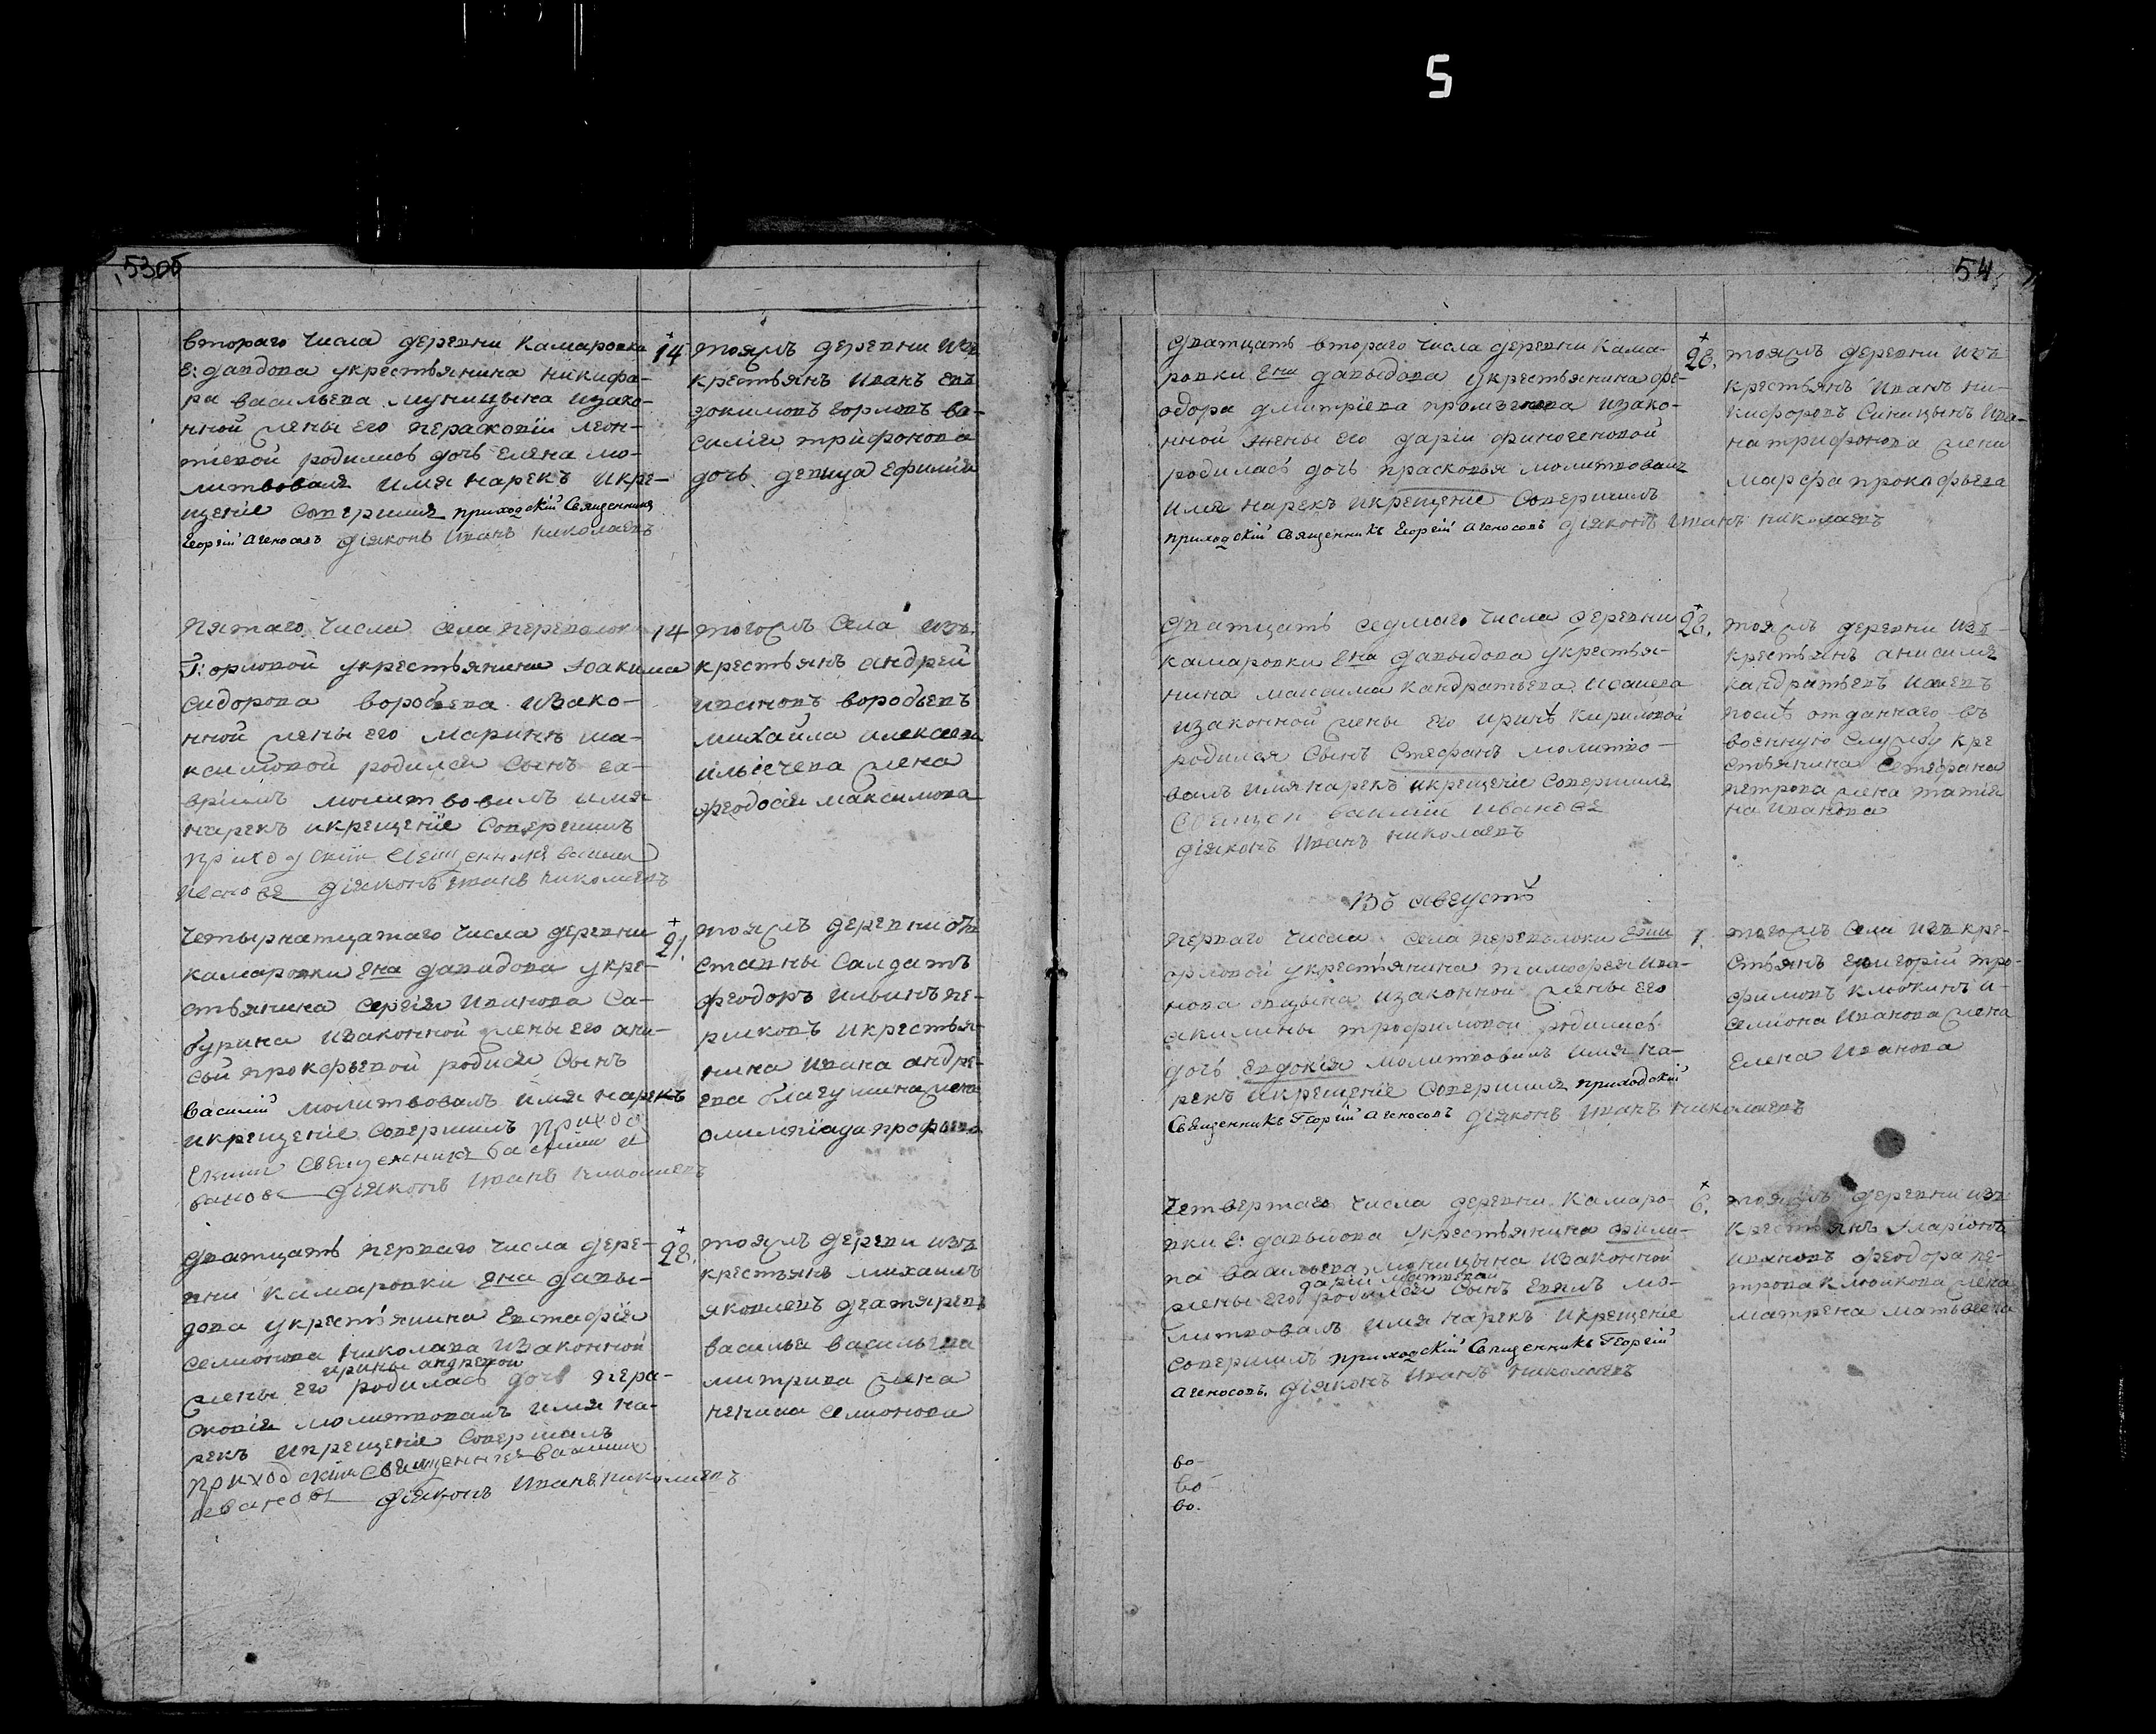 5
53об
втораго числа деревни камаровки
Е: давдова укрестьянина никифо-
ра васильева муницына изако-
нной жены его пераскопіи леон-
тіевой родилась дочь Елена мо-
литвовалъ имя нарекъ икре-
щеніе совершилъ приходскій Священникъ
Георгій Агеносовъ діяконъ Иванъ николаевъ
14
тояжъ деревни изъ
крестьянъ Иванъ Ев-
докимовъ горловъ ва-
силія трифонова
дочь девица Ефимія
пятаго числа села переволок
Г: орловой укрестьянина Іоакима
сидорова воробьева изако-
нной жены его Маринѣ ма-
ксимовой родился сынъ га-
вріилъ молитвовалъ имя
нарекъ икрещеніе совершилъ
приходскій священникъ василий
Ивановъ діяконъ Иванъ николаевъ
14
тогожъ села изъ
крестьянъ андрей
ивановъ воробьевъ
михайла алексеева
ильичева жена
феодосія максимова
четырнатцатаго числа деревни
камаровки Ена давидова укре-
стьянина сергія Иванова Са-
бурина изаконной жены его ани-
сьи прокофьевой родися сынъ
василій молитвовалъ имя нарекъ
икрещеніе совершилъ приход
скии священникъ василии и
вановъ діяконъ Иванъ николаевъ
21.
тояжъ деревни от
ставны салдатъ
феодоръ Ильинъ пе-
рликовъ икрестья-
нина Ивана андре-
ева благушина жена
олимпіада профьева
дватцать перваго числа дере-
вни камаровки Ена давы-
дова укрестьянина Евстафія
семионова николава изаконной
ирины андревой
жены его родилась дочь пера-
сковія молитвовалъ имя на-
рекъ икрещеніе совершилъ
приходскии священникъ василии
Ивановъ діяконъ Иванъ николаевъ
28.
тояжъ деревни изъ
крестьянъ михаилъ
яковлевъ дегтяревъ
василья васильева
митрива жена
ненила семионова
54
дватцать втораго числа деревни кама-
ровки Ена давыдова укрестьянина фе-
одора дмитріева промзелева изако-
нной жены его даріи финогеновой
родилась дочь прасковья молитвовалъ
имя нарекъ икрещеніе совершилъ
приходскій священникъ Георгій Агеносовъ діяконъ Иванъ николаевъ
28.
тояжъ деревни изъ
крестьянъ Иванъ ни-
кифоровъ Синицынъ Ива-
на трифонова жена
марфа прокофьева
дватцать седмаго числа деревни
камаровки Ена давыдова укрестья-
нина максима кандратьева Исаиева
изаконной жены его иринѣ кириловой
родился сынъ стефанъ молитво-
валъ имя нарекъ икрещеніе совершилъ
Священ василіи Ивановъ
діяконъ Иванъ николаевъ
28.
тояжъ деревни изъ
крестьянъ анисимъ
кандратьевъ Исаевъ
послѣ отданнаго въ
военную службу кре
стьянина Стефана
петрова жена татия
на Иванова
Въ августѣ
перваго числа села переволоки Егии
орловой укрестьянина тимофея Ива-
нова овцына изаконной жены его
акилины трофимовой родилась
дочь Евдокія молитвовалъ имя на-
рекъ икрещеніе совершилъ приходскій
Священникъ Георгій Агеносовъ діяконъ Иванъ николаевъ
1.
тогожъ села изъ кре-
стьянъ григорій тро-
фимовъ клюкинъ и-
семіона Иванова жена
Елена Иванова
Четвертаго числа деревни камаро-
вки Е: давыдова укрестьянина фили-
па васильева муницына изаконной
даріи матвеевой
жены его родился сынъ Евплъ мо-
литвовалъ имя нарекъ икрещеніе
совершилъ приходскій Священникъ Георгій
Агеносовъ. діяконъ Иванъ николаевъ
6.
тояжъ деревни изъ
крестьянъ Иларіонъ
ивановъ феодора пе-
трова клюикова жена
матрена матьвеева
во-
во-
во.